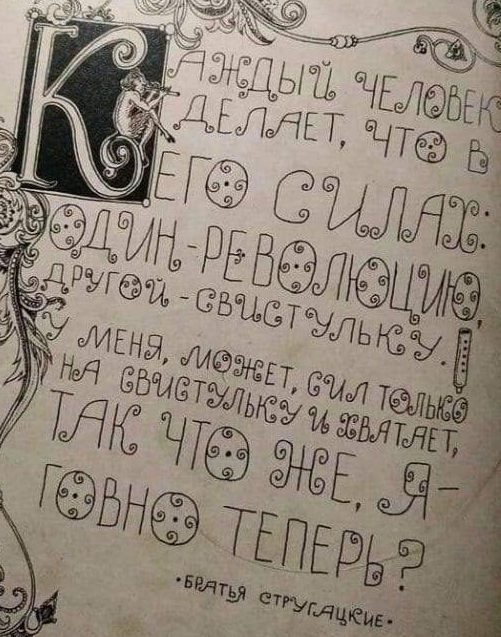 КАЖДЫЙ ЧЕЛОВЕК
ДЕЛАЕТ, ЧТО В
ЕГО СИЛАХ:
ОДИН-РЕВОЛЮЦИЮ,
ДРУГОЙ-СВИСТУЛЬКУ.
У МЕНЯ, МОЖЕТ, СИЛ ТОЛЬКО
НА СВИСТУЛЬКУ И ХВАТАЕТ,
ТАК ЧТО ЖЕ, Я-
ГОВНО ТЕПЕРЬ?
•БРАТЬЯ СТРУГАЦКИЕ•